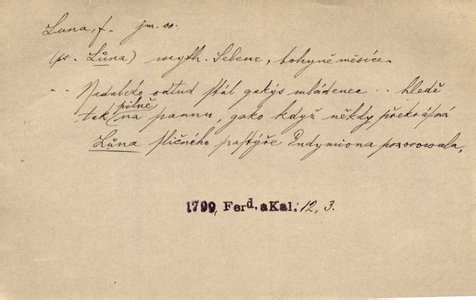 Luna, f. jm. os.
(pr. Lůna) myth. Selene, bohyně měsíce.
.. Nedaleko odtud stál gakýs mládenec .. hledě
tak pilně na pannu, gako když někdy překrásná
Lůna sličného pastýře Endymiona pozorowala,
1799, Ferd. a Kal. 12, 3.